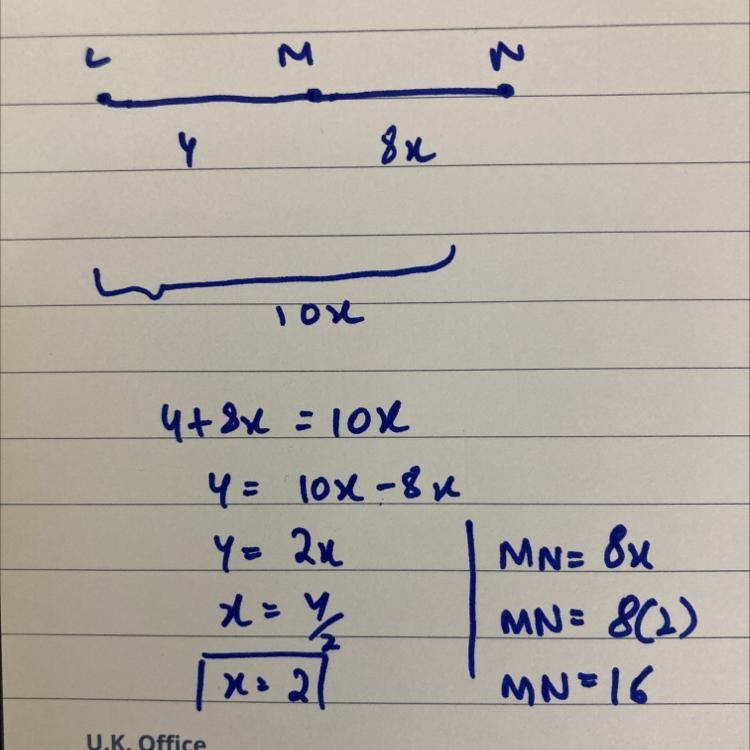 L M N
4 8x
10x
4+8x = 10x
4 = 10x - 8x
4 = 2x
x = 4/2
x = 2
MN = 8x
MN = 8(2)
MN = 16
U.K. Office